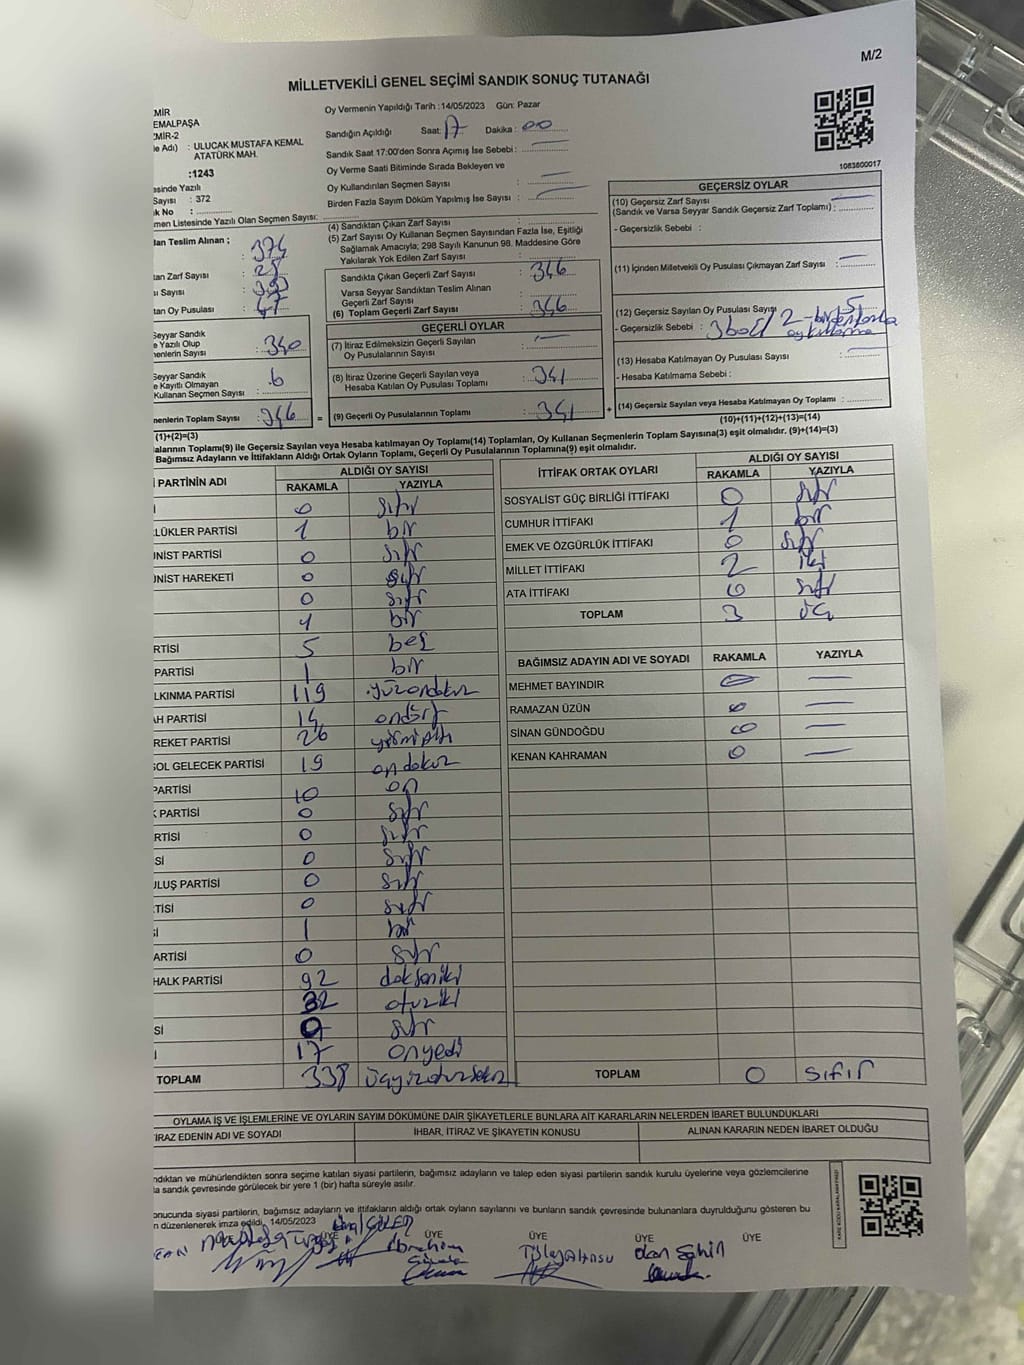 M/2
MİLLETVEKİLİ GENEL SEÇİMİ SANDIK SONUÇ TUTANAĞI
MİR
EMALPAŞA
ZMİR-2
e Adı) : ULUCAK MUSTAFA KEMAL
ATATÜRK MAH.
:1243
esinde Yazılı
Sayısı : 372
k No :
men Listesinde Yazılı Olan Seçmen Sayısı:
lan Teslim Alınan ;
374
tan Zarf Sayısı 28
sı Sayısı
tan Oy Pusulası 47
Seyyar Sandık
e Yazılı Olup
nenlerin Sayısı : 340
Seyyar Sandık
e Kayıtlı Olmayan
Kullanan Seçmen Sayısı : 6
nenlerin Toplam Sayısı : 346 =
(1)+(2)=(3)
Oy Vermenin Yapıldığı Tarih :14/05/2023 Gün: Pazar
Sandığın Açıldığı Saat: 17 Dakika : 00
Sandık Saat 17:00'den Sonra Açımış İse Sebebi :
Oy Verme Saati Bitiminde Sırada Bekleyen ve
Oy Kullandırılan Seçmen Sayısı :
Birden Fazla Sayım Döküm Yapılmış İse Sayısı :
(4) Sandıktan Çıkan Zarf Sayısı :
(5) Zarf Sayısı Oy Kullanan Seçmen Sayısından Fazla İse, Eşitliği
Sağlamak Amacıyla; 298 Sayılı Kanunun 98. Maddesine Göre
Yakılarak Yok Edilen Zarf Sayısı :
Sandıkta Çıkan Geçerli Zarf Sayısı : 346
Varsa Seyyar Sandıktan Teslim Alınan
Geçerli Zarf Sayısı :
(6) Toplam Geçerli Zarf Sayısı : 346
GEÇERLİ OYLAR
(7) İtiraz Edilmeksizin Geçerli Sayılan
Oy Pusulalarının Sayısı :
(8) İtiraz Üzerine Geçerli Sayılan veya
Hesaba Katılan Oy Pusulası Toplamı : 341
(9) Geçerli Oy Pusulalarının Toplamı : 341 +
1083800017
GEÇERSİZ OYLAR
(10) Geçersiz Zarf Sayısı
(Sandık ve Varsa Seyyar Sandık Geçersiz Zarf Toplamı) :
- Geçersizlik Sebebi :
(11) İçinden Milletvekili Oy Pusulası Çıkmayan Zarf Sayısı :
(12) Geçersiz Sayılan Oy Pusulası Sayısı : 5
- Geçersizlik Sebebi :
(13) Hesaba Katılmayan Oy Pusulası Sayısı :
- Hesaba Katılmama Sebebi :
(14) Geçersiz Sayılan veya Hesaba Katılmayan Oy Toplamı :
(10)+(11)+(12)+(13)=(14)
alarının Toplamı(9) ile Geçersiz Sayılan veya Hesaba katılmayan Oy Toplamı(14) Toplamları, Oy Kullanan Seçmenlerin Toplam Sayısına(3) eşit olmalıdır. (9)+(14)=(3)
Bağımsız Adayların ve İttifakların Aldığı Ortak Oyların Toplamı, Geçerli Oy Pusulalarının Toplamına(9) eşit olmalıdır.
PARTİNİN ADI ALDIĞI OY SAYISI
RAKAMLA YAZIYLA
İ 0 sıfır
LÜKLER PARTİSİ 1 bir
ÜNİST PARTİSİ 0 sıfır
ÜNİST HAREKETİ 0 sıfır
0 sıfır
1 bir
RTİSİ 5 beş
PARTİSİ 1 bir
LKINMA PARTİSİ 119 yüzondokuz
AH PARTİSİ 14 ondört
REKET PARTİSİ 26 yirmialtı
SOL GELECEK PARTİSİ 19 ondokuz
PARTİSİ 10 on
K PARTİSİ 0 sıfır
RTİSİ 0 sıfır
Sİ 0 sıfır
ULUŞ PARTİSİ 0 sıfır
TİSİ 0 sıfır
İ 1 bir
ARTİSİ 0 sıfır
HALK PARTİSİ 92 doksaniki
32 otuziki
Sİ 0 sıfır
I 17 onyedi
TOPLAM 338 üçyüzotuzsekiz
İTTİFAK ORTAK OYLARI ALDIĞI OY SAYISI
RAKAMLA YAZIYLA
SOSYALİST GÜÇ BİRLİĞİ İTTİFAKI 0 sıfır
CUMHUR İTTİFAKI 1 bir
EMEK VE ÖZGÜRLÜK İTTİFAKI 0 sıfır
MİLLET İTTİFAKI 2 iki
ATA İTTİFAKI 0 sıfır
TOPLAM 3 üç
BAĞIMSIZ ADAYIN ADI VE SOYADI RAKAMLA YAZIYLA
MEHMET BAYINDIR 0
RAMAZAN ÜZÜN 0
SİNAN GÜNDOĞDU 0
KENAN KAHRAMAN 0
TOPLAM 0 sıfır
OYLAMA İŞ VE İŞLEMLERİNE VE OYLARIN SAYIM DÖKÜMÜNE DAİR ŞİKAYETLERLE BUNLARA AİT KARARLARIN NELERDEN İBARET BULUNDUKLARI
TİRAZ EDENİN ADI VE SOYADI İHBAR, İTİRAZ VE ŞİKAYETİN KONUSU ALINAN KARARIN NEDEN İBARET OLDUĞU
ndıktan ve mühürlendikten sonra seçime katılan siyasi partilerin, bağımsız adayların ve talep eden siyasi partilerin sandık kurulu üyelerine veya gözlemcilerine
la sandık çevresinde görülecek bir yere 1 (bir) hafta süreyle asılır.
onucunda siyasi partilerin, bağımsız adayların ve ittifakların aldığı ortak oyların sayılarını ve bunların sandık çevresinde bulunanlara duyrulduğunu gösteren bu
n düzenlenerek imza edildi. 14/05/2023
ÜYE ÜYE ÜYE ÜYE
İbrahim